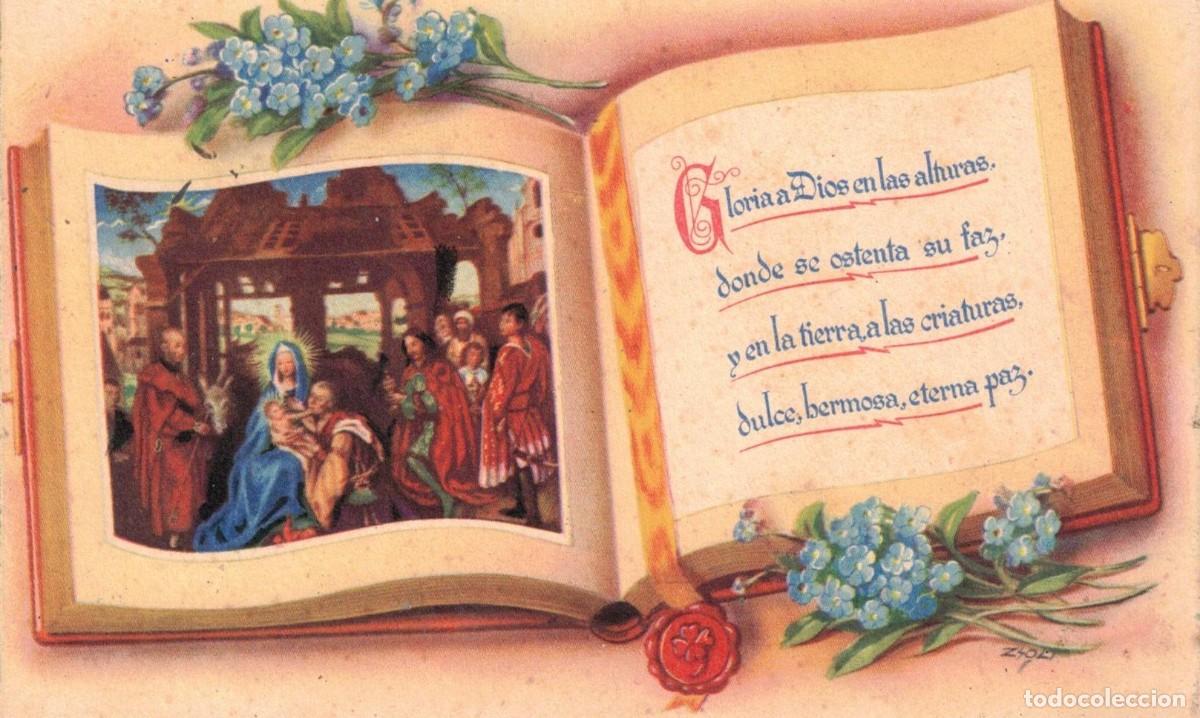 Gloria a Dios en las alturas,
donde se ostenta su faz,
y en la tierra, a las criaturas,
dulce, hermosa, eterna paz.
todocoleccion